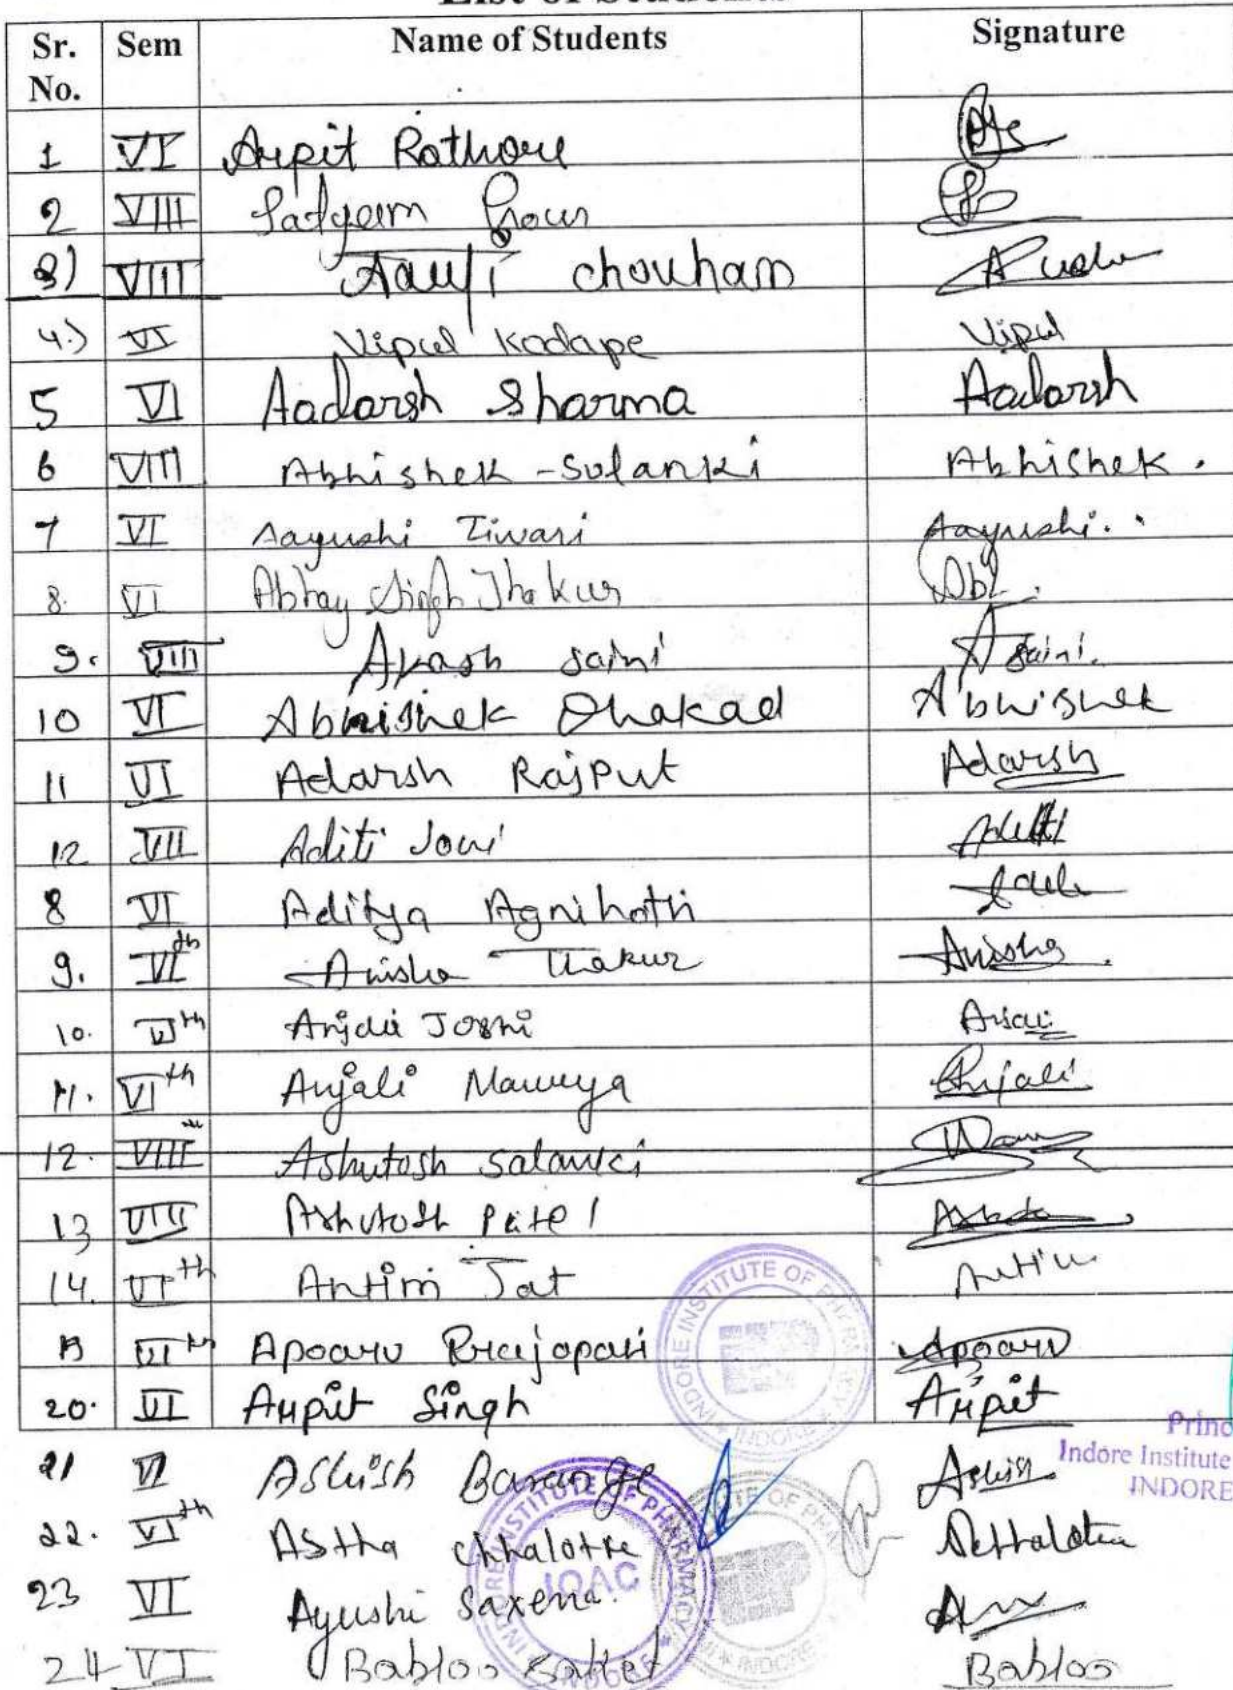 List of Students
Sr. No. Sem Name of Students Signature
1 VI Arpit Rathore
2 VIII Gour
3) VIII chouhan
4.) VI Vipul Kodape Vipul
5 VI Aadarsh Sharma Aadarsh
6 VIII Abhishek - Solanki Abhishek.
7 VI Aayushi Tiwari Aayushi.
8. VI Abhay Singh Thakur
9. VIII Akash saini A saini.
10 VI Abhishek Dhakad Abhishek
11 VI Adarsh Rajput Adarsh
12 VII Aditi Aditi
8 VI Aditya Agnihotri
9. VIth Anisha Thakur Anisha
10. VIth Anjali Joshi
11. VIth Anjali Maurya Anjali
12. VIII Ashutosh Solanki
13 VIII Ashutosh Patel
14. VIth Antim Jat Antim
VIth Apoorv Prajapati Apoorv
20. VI Arpit Singh Arpit
21 VI Ashish Barange Ashish
22. VIth Astha Chhalotre
23 VI Ayushi Saxena.
24 VI Babloo Babloo
INDORE INSTITUTE OF PHARMACY
INDORE
Princ
Indore Institute
INDORE
INDORE INSTITUTE OF PHARMACY
IQAC
INDORE